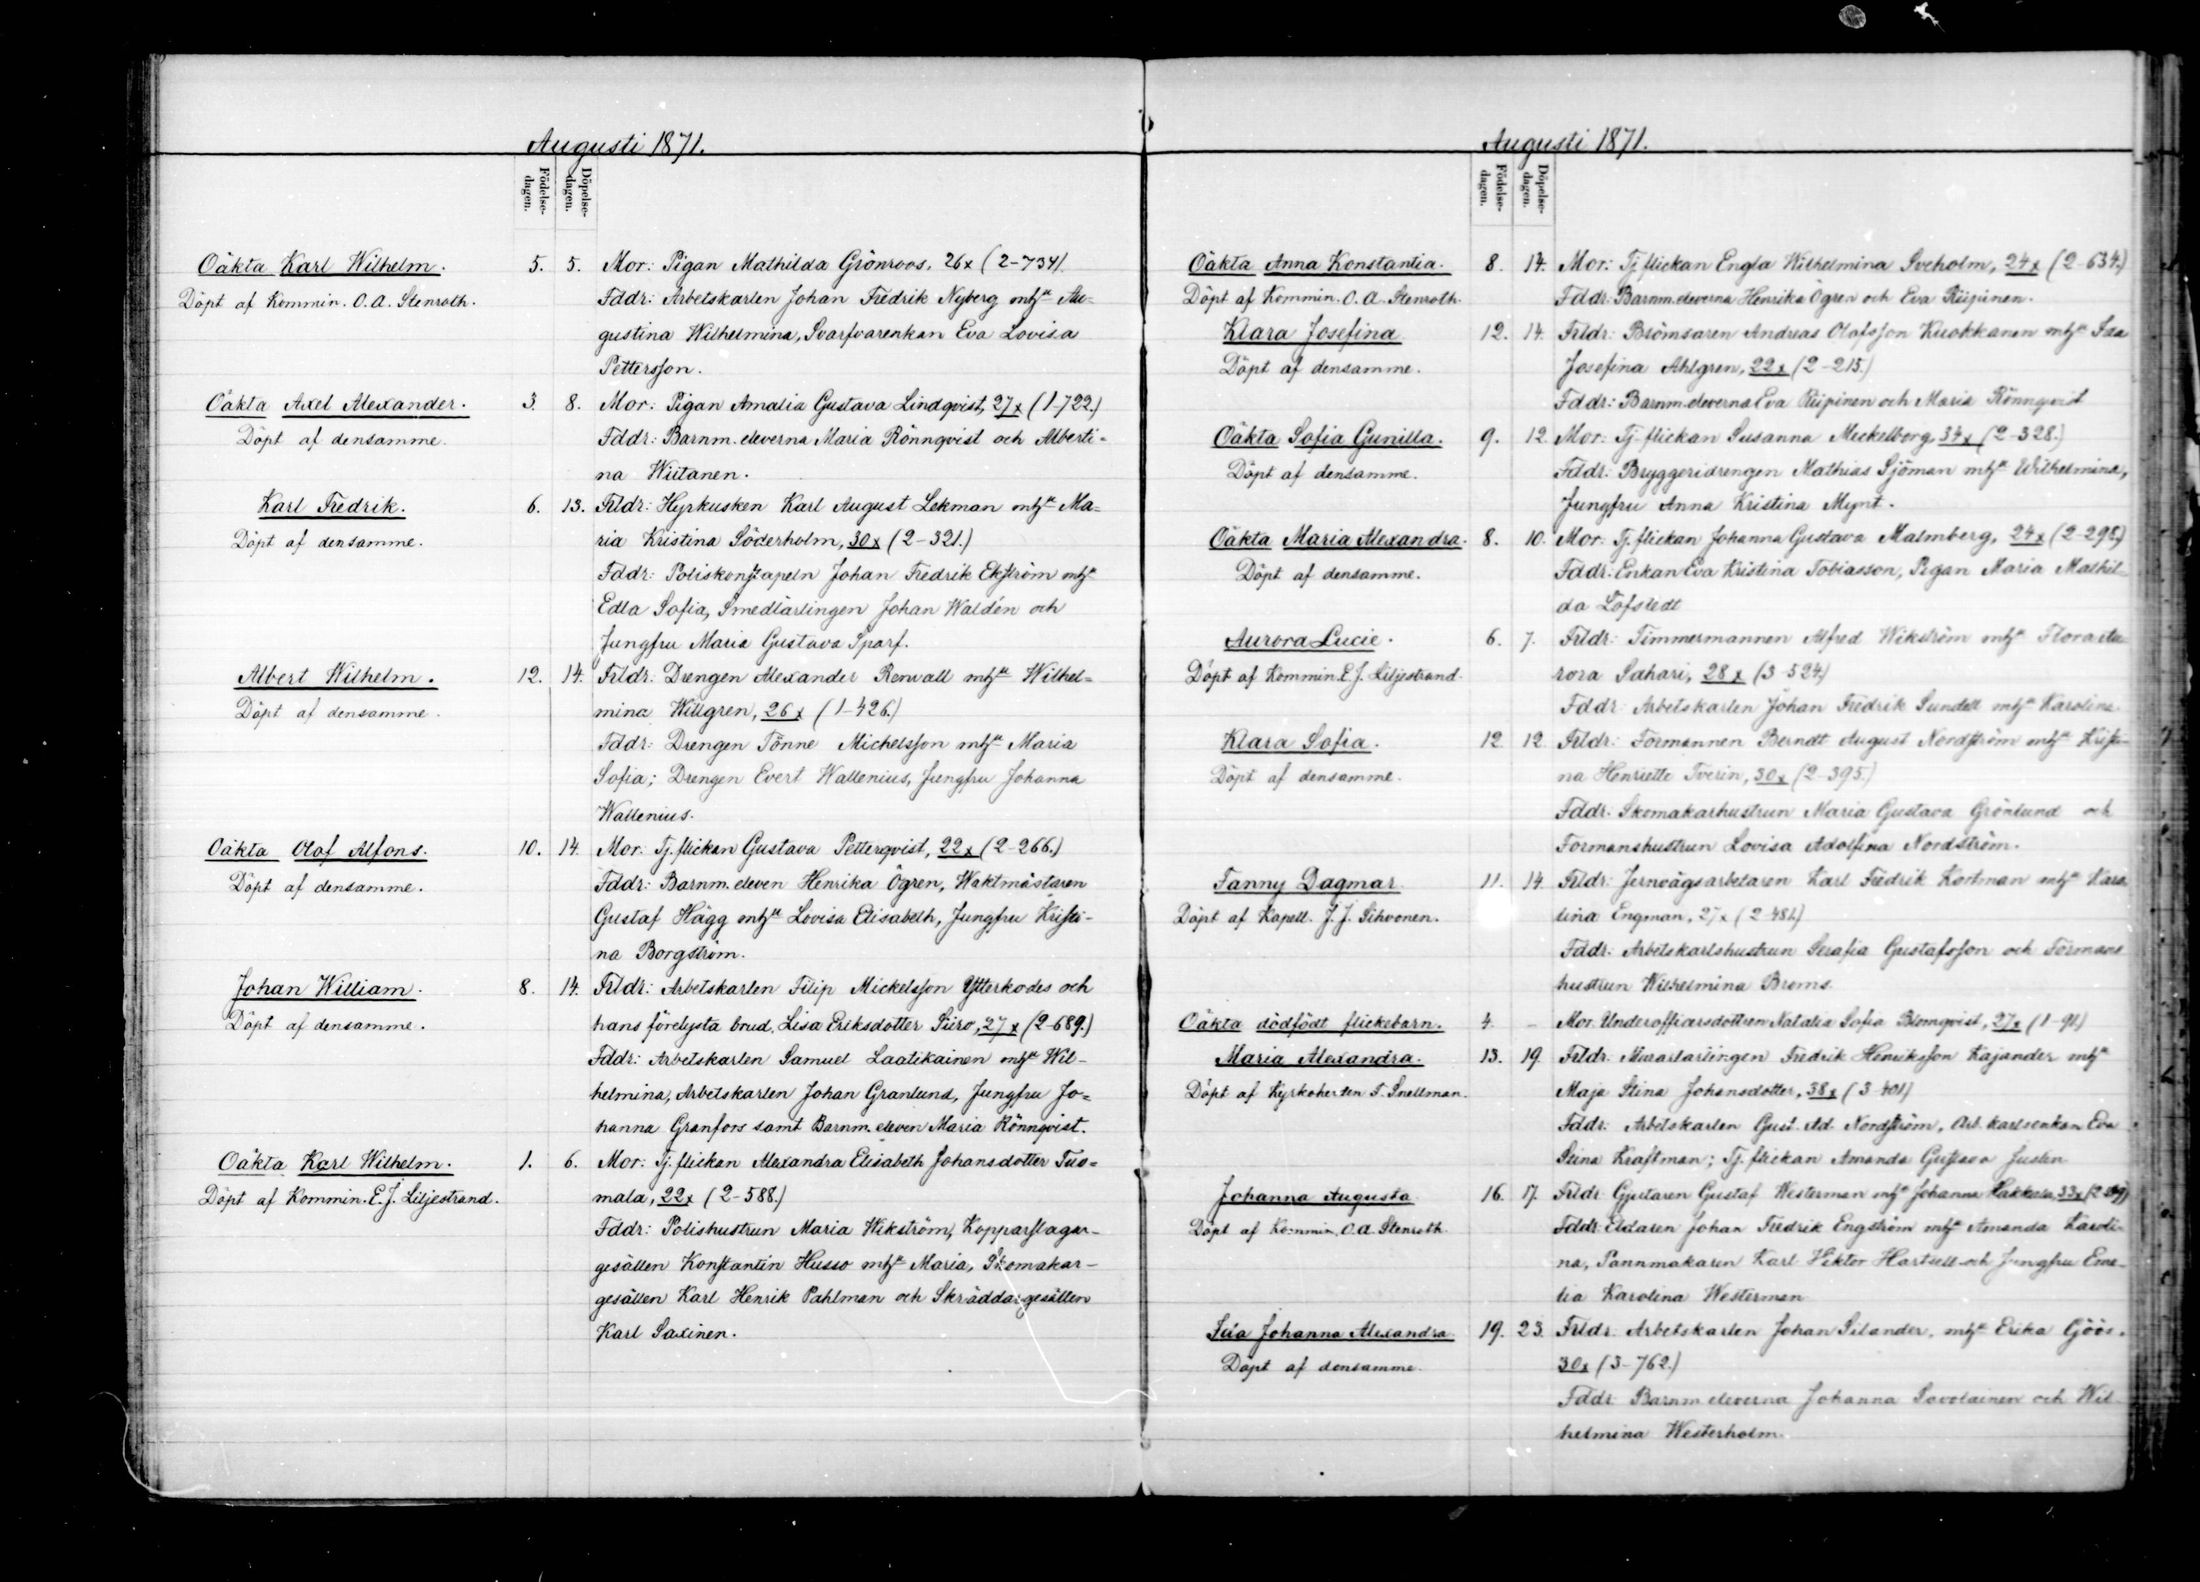 Augusti 1871.
Födelse-
dagen.
Döpelse-
dagen.
Oäkta Karl Wilhelm. 5. 5. Mor: Pigan Mathilda Grönroos, 26x (2-734).
Döpt af Kommin. O. A. Stenroth. Fddr: Arbetskarlen Johan Fredrik Nyberg mhu Au=
gustina Wilhelmina, Svarfvarenkan Eva Lovisa
Pettersson.
Oäkta Axel Alexander. 3. 8. Mor: Pigan Amalia Gustava Lindqvist, 27x (1-722.)
Döpt af densamme. Fddr: Barnm. eleverna Maria Rönnqvist och Alberti=
na Wiitanen.
Karl Fredrik. 6. 13. Frldr: Hyrkusken Karl August Lekman mhu Ma=
Döpt af densamme. ria Kristina Söderholm, 30x (2-321.)
Fddr: Poliskonstapeln Johan Fredrik Ekström mhu
Edla Sofia, Smedlärlingen Johan Waldén och
Jungfru Maria Gustava Sparf.
Albert Wilhelm. 12. 14. Frldr: Drengen Alexander Renvall mhu Wilhel=
Döpt af densamme. mina Willgren, 26x (1-426.)
Fddr: Drengen Tönne Michelsson mhu Maria
Sofia; Drengen Evert Wallenius, Jungfru Johanna
Wallenius.
Oäkta Olof Alfons. 10. 14. Mor: Tj. flickan Gustava Petterqvist, 22x (2-266.)
Döpt af densamme. Fddr: Barnm. eleven Henrika Ögren, Waktmästaren
Gustaf Hägg mhu Lovisa Elisabeth, Jungfru Kristi-
na Borgström.
Johan William. 8. 14. Frldr: Arbetskarlen Filip Mickelsson Ytterkodes och
Döpt af densamme. hans förelysta brud, Lisa Eriksdotter Piiro, 27x (2-689.)
Fddr: Arbetskarlen Samuel Laatikainen mhu Wil-
helmina, Arbetskarlen Johan Granlund, Jungfru Jo=
hanna Granfors samt Barnm. eleven Maria Rönnqvist.
Oäkta Karl Wilhelm. 1. 6. Mor: Tj. flickan Alexandra Elisabeth Johansdotter Tuo=
Döpt af Kommin. E. J. Liljestrand. mala, 22x (2-588.)
Fddr: Polishustrun Maria Wikström, Kopparslagar-
gesällen Konstantin Husso mhu Maria, Skomakar-
gesällen Karl Henrik Pahlman och Skräddaregesällen
Karl Saxinen.
Augusti 1871.
Födelse-
dagen.
Döpelse-
dagen.
Oäkta Anna Konstantia. 8. 14. Mor: Tj. flickan Engla Wilhelmina Sveholm, 24x (2-634.)
Döpt af Kommin. O. A. Stenroth. Fddr: Barnm. eleverna Henrika Ögren och Eva Riipinen.
Klara Josefina 12. 14. Frldr: Bromsaren Andreas Olofsson Kuokkanen mhu Ida
Döpt af densamme. Josefina Ahlgren, 22x (2-215.)
Fddr: Barnm. eleverna Eva Riipinen och Maria Rönnqvist
Oäkta Sofia Gunilla. 9. 12. Mor: Tj. flickan Susanna Meckelborg 34x (2-328.)
Döpt af densamme. Fddr: Bryggeridrengen Mathias Sjöman mhu Wilhelmina,
Jungfru Anna Kristina Mynt.
Oäkta Maria Alexandra. 8. 10. Mor: Tj. flickan Johanna Gustava Malmberg, 24x (2-298.)
Döpt af densamme. Fddr: Enkan Eva Kristina Tobiasson, Pigan Maria Mathil-
da Löfstedt
Aurora Lucie. 6. 7. Frldr: Timmermannen Alfred Wikström mhu Flora Au-
Döpt af Kommin. E. J. Liljestrand. rora Sahari, 28x (3-524.)
Fddr: Arbetskarlen Johan Fredrik Sundell mhu Karolina
Klara Sofia. 12. 12. Frldr: Formannen Berndt August Nordström mhu Kristi-
Döpt af densamme. na Henriette Tverin, 30x (2-395.)
Fddr: Skomakarhustrun Maria Gustava Grönlund och
Formanshustrun Lovisa Adolfina Nordström.
Fanny Dagmar 11. 14. Frldr: Jernvägsarbetaren Karl Fredrik Kortman mhu Karo
Döpt af Kapell. J. J. Sihvonen. lina Engman, 27x (2-481.)
Fddr: Arbetskarlshustrun Serafia Gustafsson och Formans
hustrun Wilhelmina Broms.
Oäkta dödfödt flickebarn. 4. - Mor: Underofficersdottren Natalia Sofia Blomqvist, 27x (1-91.)
Maria Alexandra. 13. 19. Frldr: Murarlärlingen Fredrik Henriksson Kajander mhu
Döpt af Kyrkoherden T. Snellman. Maja Stina Johansdotter, 38x (3-401)
Fddr: Arbetskarlen Gust. Ad. Nordström, Arb. karlsenkan Eva
Stina Kraftman; Tj. flickan Amanda Gustava Juslen
Johanna Augusta 16. 17. Frldr: Gjutaren Gustaf Westerman mhu Johanna Hakkala, 33x
Döpt af Kommin. O. A. Stenroth. Fddr: Eldaren Johan Fredrik Engström mhu Amanda Karoli-
na, Pannmakaren Karl Viktor Hartsell och Jungfru Eme-
lia Karolina Westerman
Ida Johanna Alexandra 19. 23. Frldr: Arbetskarlen Johan Silander, mhu Erika Göös.
Döpt af densamme. 30x (3-762.)
Fddr: Barnm eleverna Johanna Savolainen och Wil-
helmina Westerholm.